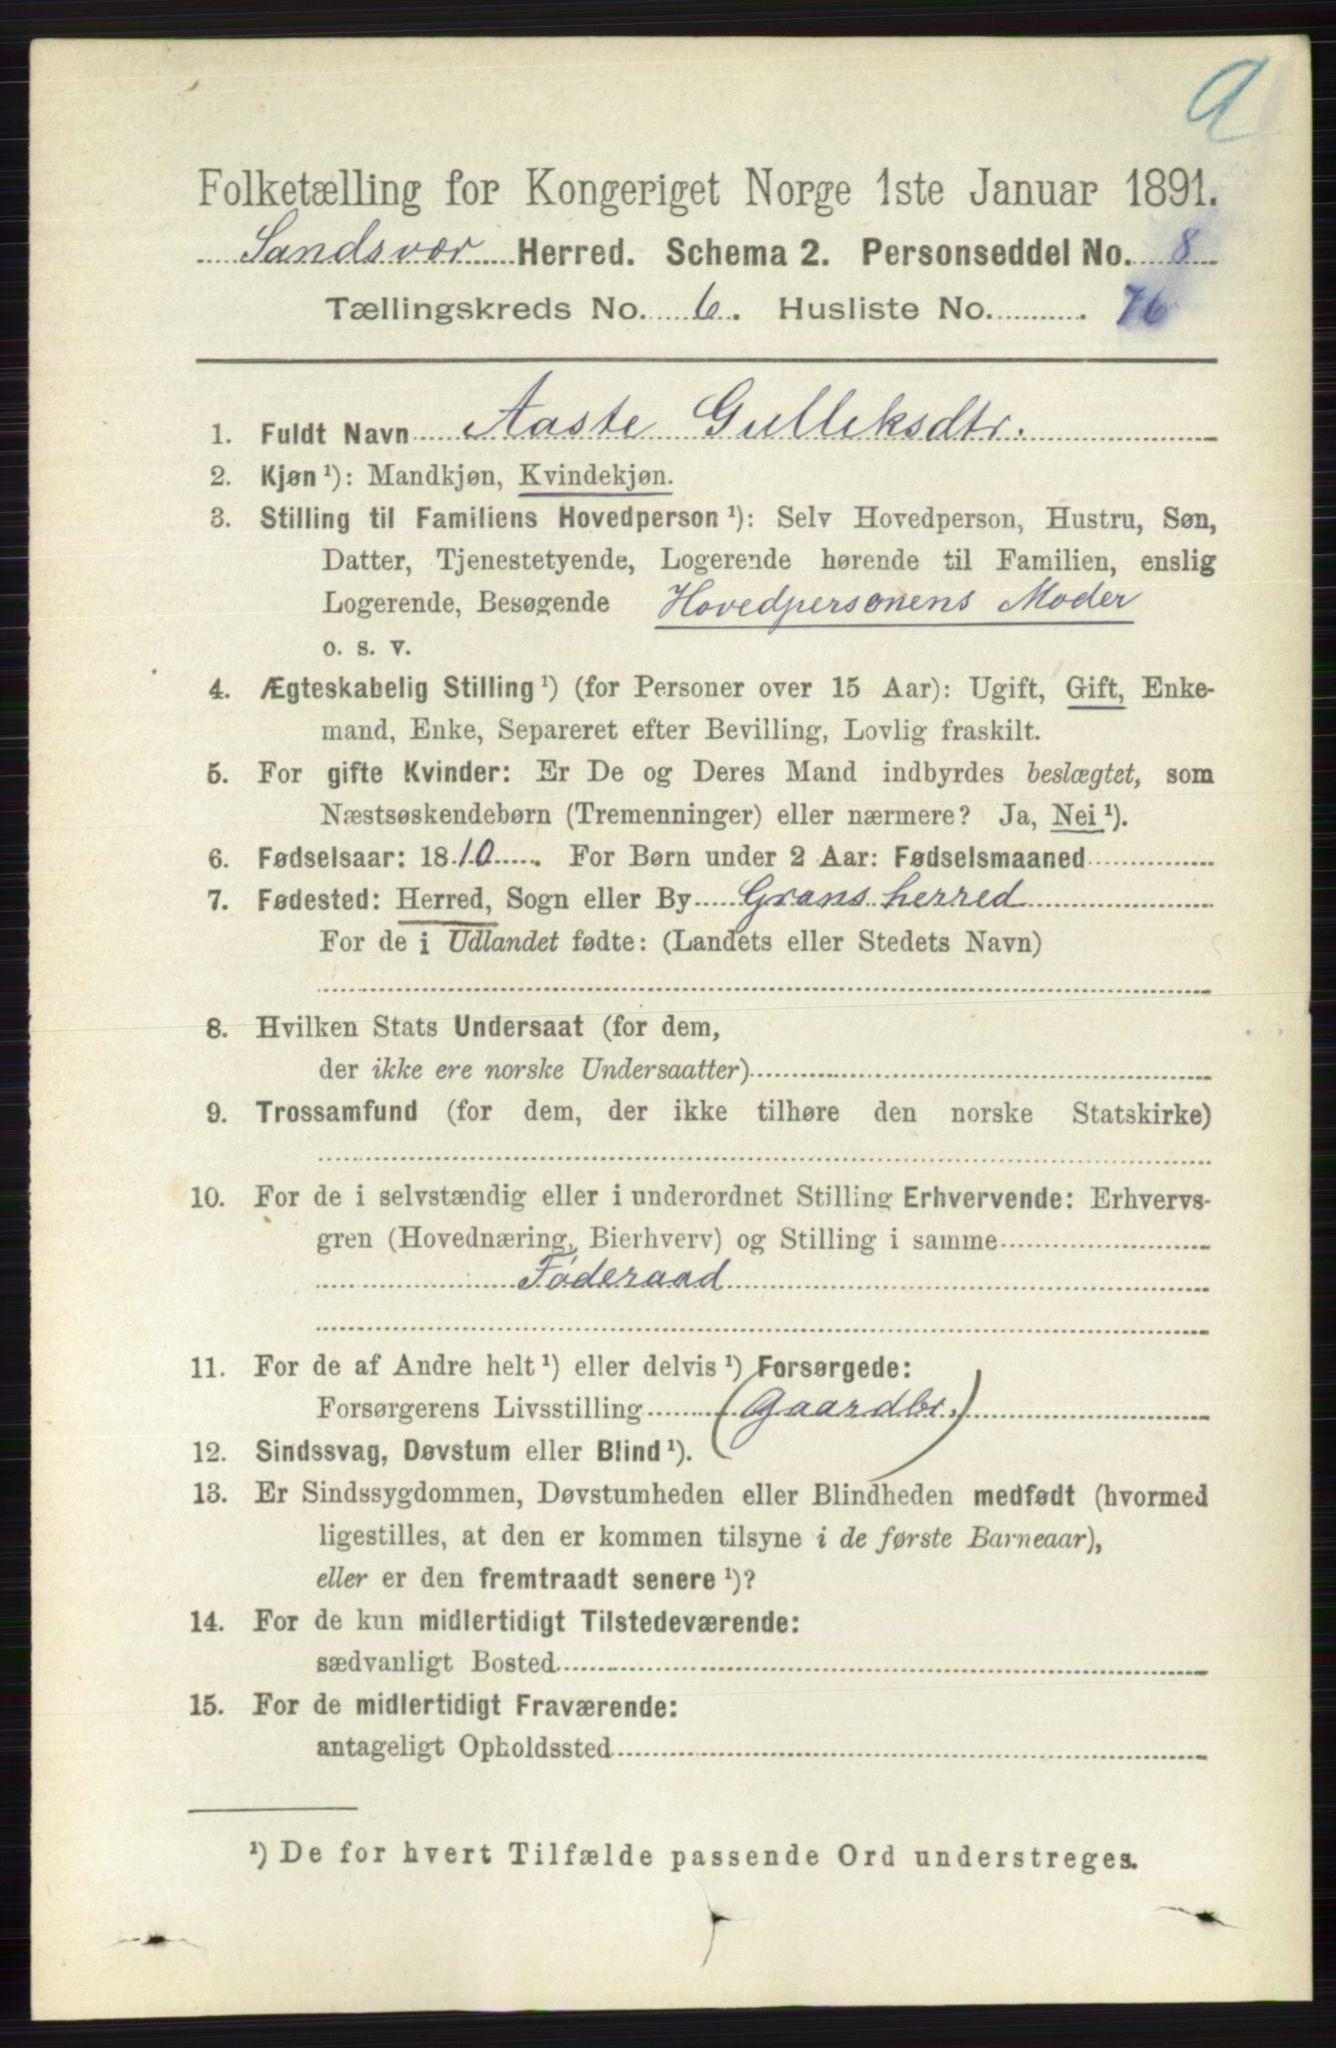 a
Folketælling for Kongeriget Norge 1ste Januar 1891.
Sandsvær Herred. Schema 2. Personseddel No. 8
Tællingskreds No. 6. Husliste No. 76
1. Fuldt Navn Aaste Gulleksdtr.
2. Kjøn ¹): Mandkjøn, Kvindekjøn.
3. Stilling til Familiens Hovedperson ¹): Selv Hovedperson, Hustru, Søn,
Datter, Tjenestetyende, Logerende hørende til Familien, enslig
Logerende, Besøgende Hovedpersonens Moder
o. s. v.
4. Ægteskabelig Stilling ¹) (for Personer over 15 Aar): Ugift, Gift, Enke-
mand, Enke, Separeret efter Bevilling, Lovlig fraskilt.
5. For gifte Kvinder: Er De og Deres Mand indbyrdes beslægtet, som
Næstsøskendebørn (Tremenninger) eller nærmere? Ja, Nei ¹).
6. Fødselsaar: 1810. For Børn under 2 Aar: Fødselsmaaned
7. Fødested: Herred, Sogn eller By Gransherred
For de i Udlandet fødte: (Landets eller Stedets Navn)
8. Hvilken Stats Undersaat (for dem,
der ikke ere norske Undersaatter)
9. Trossamfund (for dem, der ikke tilhøre den norske Statskirke)
10. For de i selvstændig eller i underordnet Stilling Erhvervende: Erhvervs-
gren (Hovednæring, Bierhverv) og Stilling i samme
Føderaad
11. For de af Andre helt ¹) eller delvis ¹) Forsørgede:
Forsørgerens Livsstilling (Gaardbr.)
12. Sindssvag, Døvstum eller Blind ¹).
13. Er Sindssygdommen, Døvstumheden eller Blindheden medfødt (hvormed
ligestilles, at den er kommen tilsyne i de første Barneaar),
eller er den fremtraadt senere ¹)?
14. For de kun midlertidigt Tilstedeværende:
sædvanligt Bosted
15. For de midlertidigt Fraværende:
antageligt Opholdssted
¹) De for hvert Tilfælde passende Ord understreges.